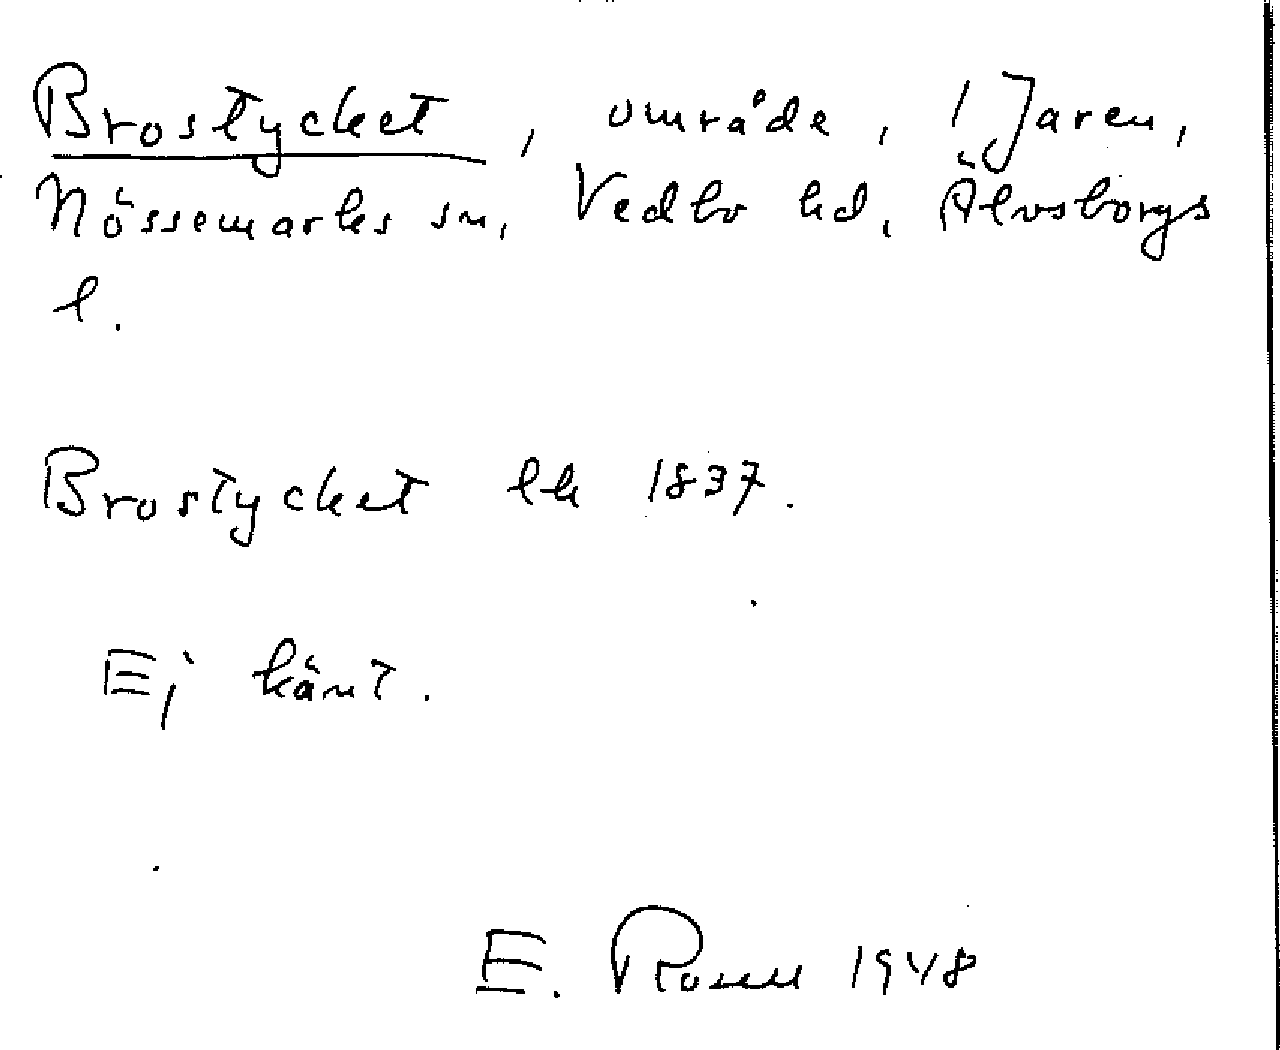 Brostycket, område, 1 Jaren,
Nössemarks sn, Vedbo hd, Älvsborgs
l.
Brostycket lk 1837.
Ej känt.
E. Rosell 1948